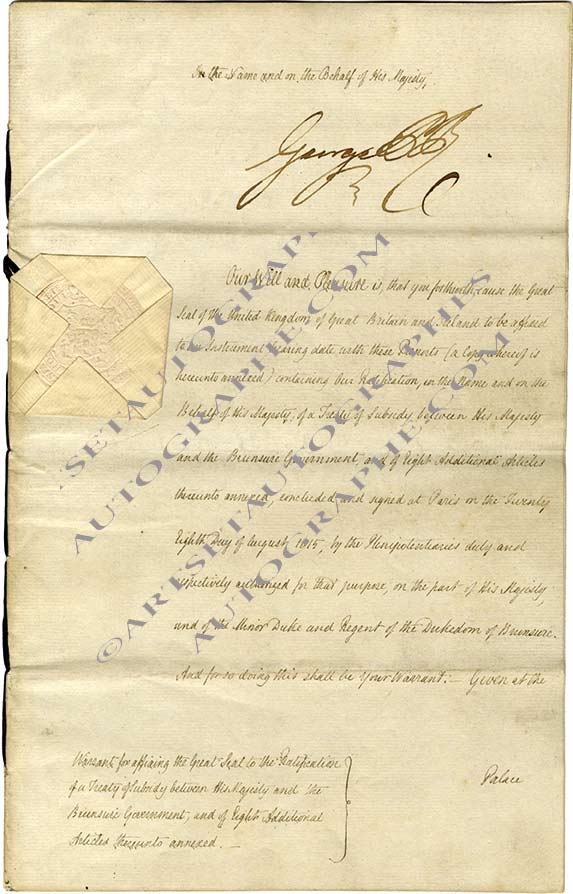 In the Name and on the Behalf of His Majesty,
George P R
Our Will and Pleasure is, that you forthwith cause the Great
Seal of the United Kingdom of Great Britain and Ireland to be affixed
to an Instrument bearing date with these Presents (a Copy whereof is
hereunto annexed) containing Our Ratification, in the Name and on the
Behalf of His Majesty, of a Treaty of Subsidy between His Majesty
and the Brunswic Government, and of Eight Additional Articles
thereunto annexed, concluded and signed at Paris on the Twenty
Eighth Day of August, 1815, by the Plenipotentiaries duly and
respectively authorized for that purpose, on the part of His Majesty,
and of the Minor Duke and Regent of the Dukedom of Brunswic.
And for so doing this shall be Your Warrant:— Given at the
Palace
Warrant for affixing the Great Seal to the Ratification
of a Treaty of Subsidy between His Majesty and the
Brunswic Government, and of Eight Additional
Articles thereunto annexed.—
©ARTSETAUTOGRAPHE.COM
AUTOGRAPHE.COM
ARTSETAUTOGRAPHES
AUTOGRAPHE.COM